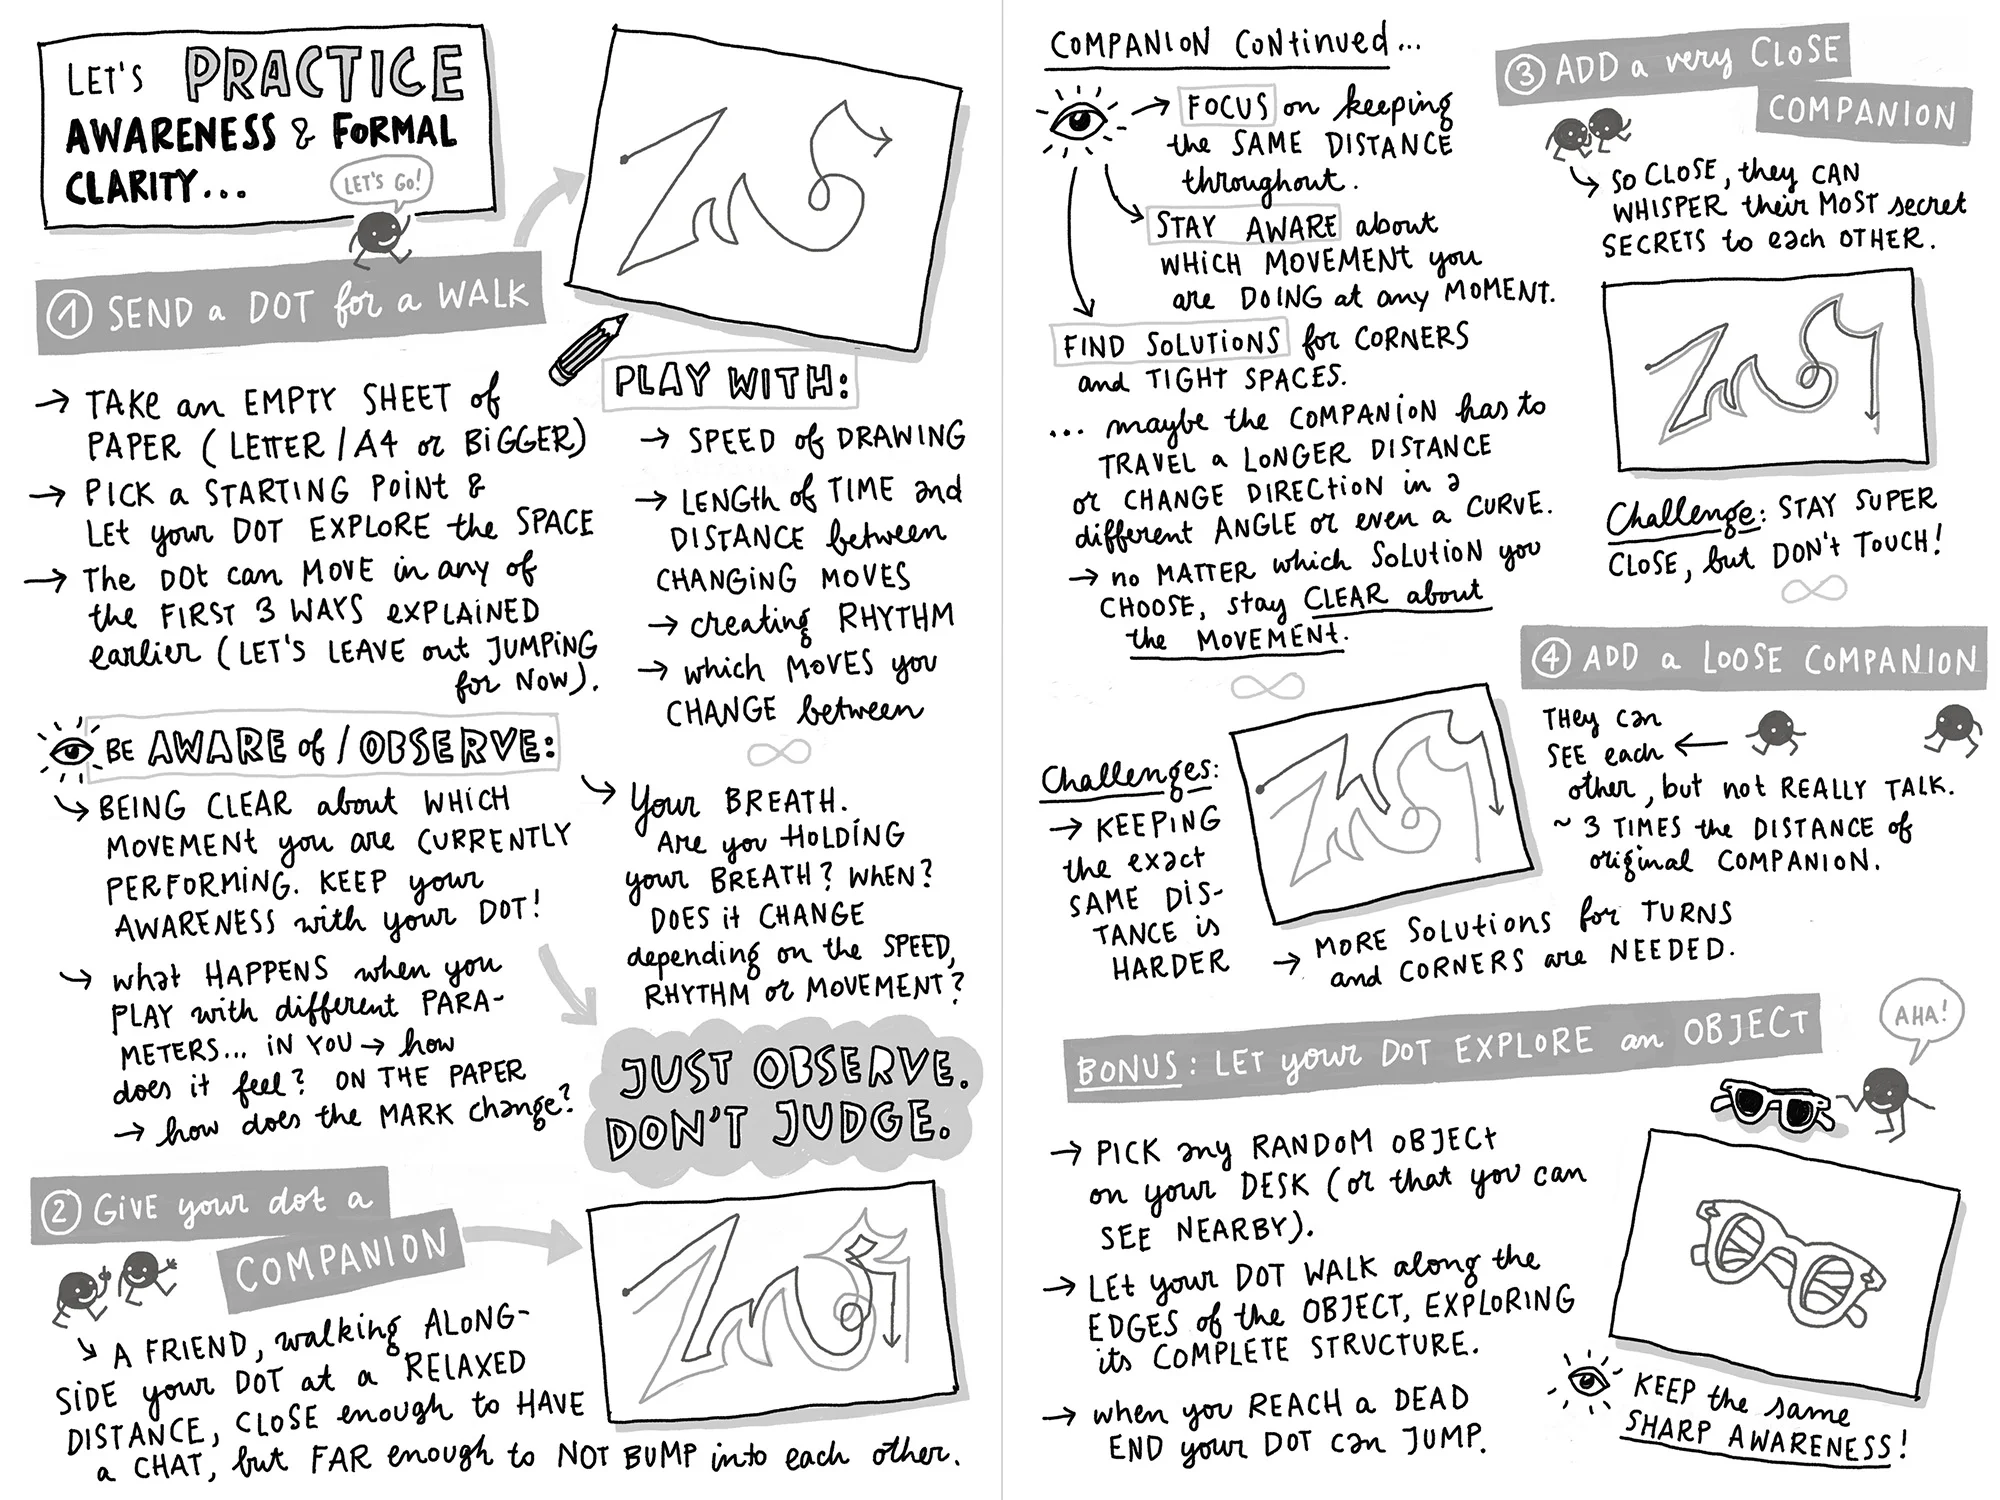 LET'S PRACTICE
AWARENESS & FORMAL
CLARITY...
LET'S GO!
① SEND a DOT for a WALK
→ TAKE an EMPTY SHEET of
PAPER (LETTER/A4 or BIGGER)
→ PICK a STARTING POINT &
LET your DOT EXPLORE the SPACE
→ THE DOT can MOVE in any of
the FIRST 3 WAYS EXPLAINED
earlier (LET'S LEAVE out JUMPING
for NOW).
BE AWARE of / OBSERVE:
↳ BEING CLEAR about WHICH
MOVEMENT you are CURRENTLY
PERFORMING. KEEP your
AWARENESS with your DOT!
↳ what HAPPENS when you
PLAY with different PARA-
METERS... IN YOU → how
does it feel? ON THE PAPER
→ how does the MARK change?
PLAY WITH:
→ SPEED of DRAWING
→ LENGTH of TIME and
DISTANCE between
CHANGING MOVES
→ creating RHYTHM
→ which MOVES you
CHANGE between
↳ your BREATH.
Are you HOLDING
your BREATH? WHEN?
DOES it CHANGE
depending on the SPEED,
RHYTHM or MOVEMENT?
JUST OBSERVE.
DON'T JUDGE.
② GIVE your dot a
COMPANION
↳ A FRIEND, walking ALONG-
SIDE your DOT at a RELAXED
DISTANCE, CLOSE enough to HAVE
a CHAT, but FAR enough to NOT BUMP into each other.
COMPANION CONtinued...
→ FOCUS on keeping
the SAME DISTANCE
throughout.
STAY AWARE about
WHICH MOVEMENT you
are DOING at any MOMENT.
FIND SOLUTIONS for CORNERS
and TIGHT SPACES.
... maybe the COMPANION has to
TRAVEL a LONGER DISTANCE
or CHANGE DIRECTION in a
different ANGLE or even a CURVE.
→ no MATTER which SOLUTION you
CHOOSE, stay CLEAR about
the MOVEMENT.
Challenges:
→ KEEPING
the exact
SAME DIS-
TANCE is
HARDER
→ MORE SOLUTIONS for TURNS
and CORNERS are NEEDED.
③ ADD a very CLOSE
COMPANION
↳ SO CLOSE, they CAN
WHISPER their MOST secret
SECRETS to each OTHER.
Challenge: STAY SUPER
CLOSE, but DON'T TOUCH!
④ ADD a LOOSE COMPANION
THEY can
SEE each ←
other, but not REALLY TALK.
~ 3 TIMES the DISTANCE of
original COMPANION.
BONUS: LET your DOT EXPLORE an OBJECT
AHA!
→ PICK any RANDOM OBJECT
on your DESK (or that you can
SEE NEARBY).
→ LET your DOT WALK along the
EDGES of the OBJECT, EXPLORING
its COMPLETE STRUCTURE.
→ when you REACH a DEAD
END your DOT can JUMP.
KEEP the same
SHARP AWARENESS!